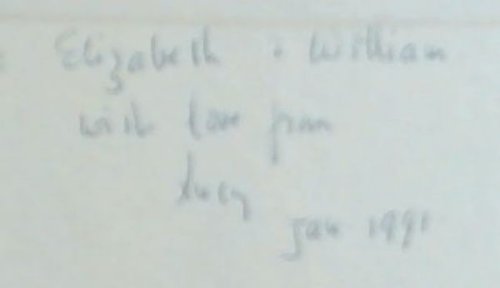 Elizabeth + William
with love from
Lucy
Jan 1991